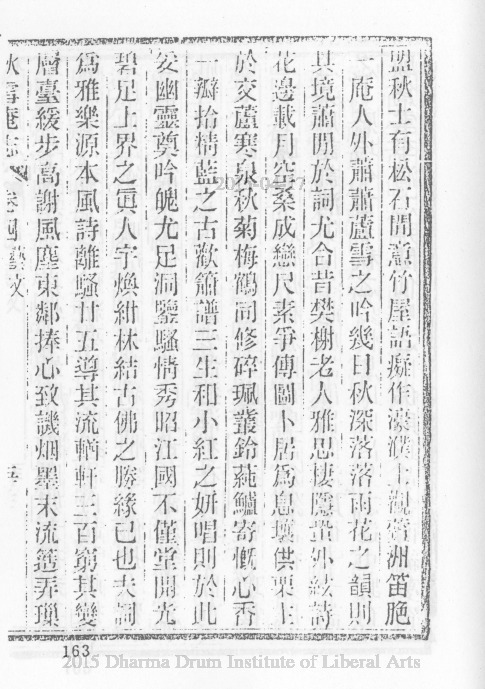 盟秋士有松石間意竹屋語癡作濠濮上觀賓洲笛脆
一庵人外蕭蕭蘆雪之吟幾日秋深落落雨花之韻則
其境蕭閒於詞尤合昔樊榭老人雅思棲隱塵外絃詩
花邊載月空桑成戀尺素爭傳圖卜居為息壤供栗主
於交蘆寒泉秋菊梅鶴同修碎珮叢鈴蓴鱸寄慨心香
一瓣拾精藍之古歡簫譜三生和小紅之妍唱則於此
安幽靈奠吟魄尤足洞鑒騷情秀昭江國不僅堂開光
碧足上界之真人字煥紺林結古佛之勝緣已也夫詞
為雅樂源本風詩離騷廿五導其流輶軒三百窮其變
層臺緩步高謝風塵東鄰捧心致譏烟墨末流箏弄瑣
秋雪庵志 卷四藝文 五
163
2015 Dharma Drum Institute of Liberal Arts